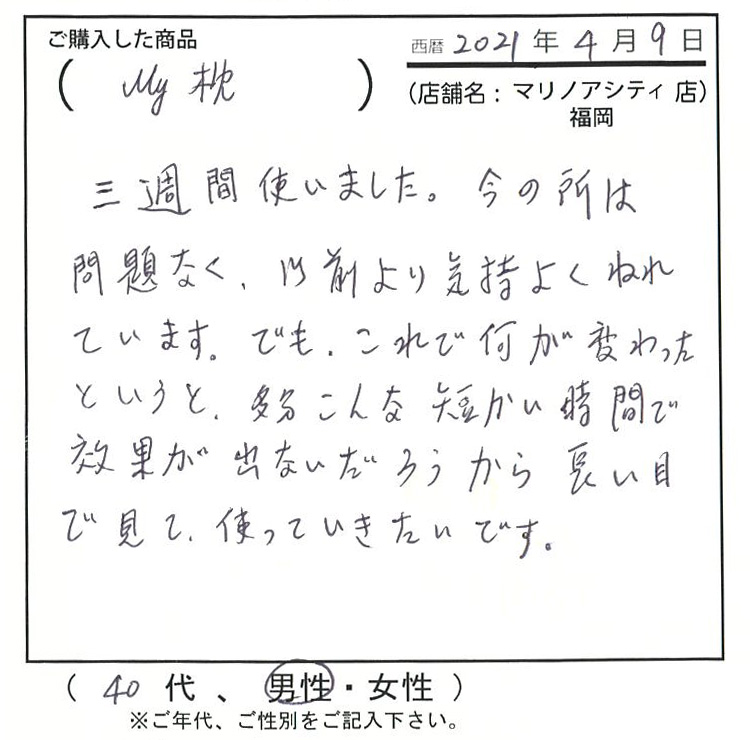 ご購入した商品
西暦 2021 年 4 月 9 日
( My 枕 )
(店舗名：マリノアシティ 店)
福岡
三週間使いました。今の所は
問題なく、以前より気持よくねれ
ています。でも、これで何が変わった
というと、多分こんな短かい時間で
効果が出ないだろうから長い目
で見て、使っていきたいです。
( 40 代 、 男性・女性 )
※ご年代、ご性別をご記入下さい。